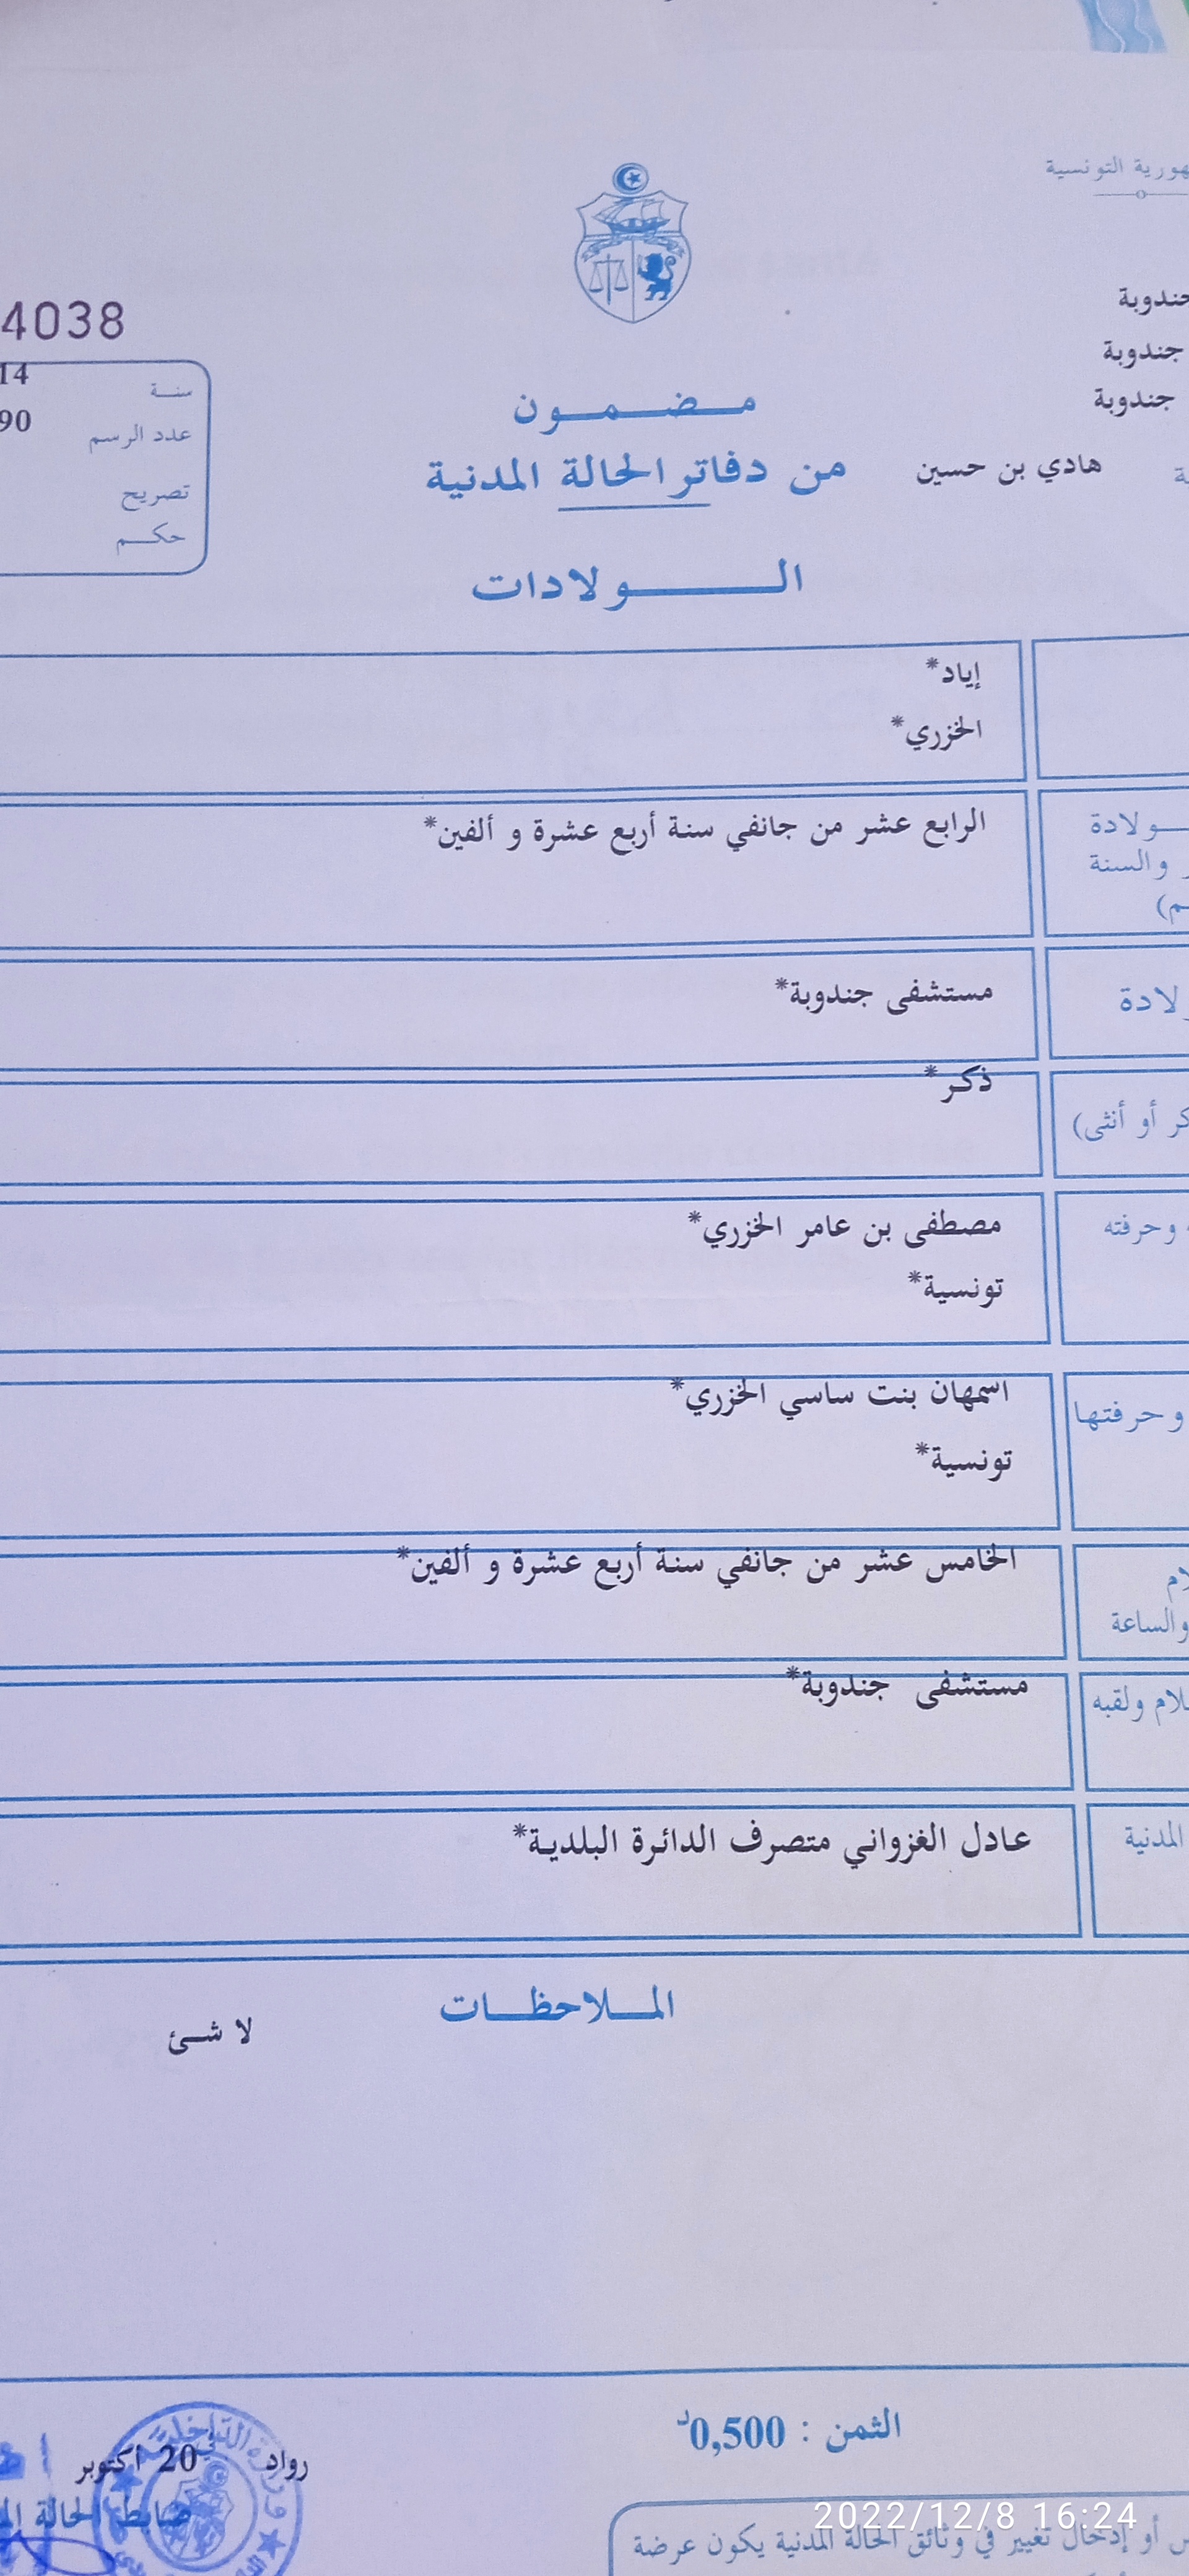 التونسية
جندوبة
جندوبة
4038
14
سنة
90
عدد الرسم
تصريح
حكم
مضمون
من دفاتر الحالة المدنية
هادي بن حسين
الولادات
إياد*
الخزري*
الرابع عشر من جانفي سنة أربع عشرة و ألفين*
والسنة
مستشفى جندوبة*
ذكر*
أو أنثى)
مصطفى بن عامر الخزري*
وحرفته
تونسية*
اسمهان بنت ساسي الخزري*
وحرفتها
تونسية*
الخامس عشر من جانفي سنة أربع عشرة و ألفين*
والساعة
مستشفى جندوبة*
ولقبه
عادل الغزواني متصرف الدائرة البلدية*
المدنية
الملاحظات
لا شئ
الثمن : 0,500د
رواد في 20 أكتوبر
ضابط الحالة
2022/12/8 16:24
أو إدخال تغيير في وثائق الحالة المدنية يكون عرضة